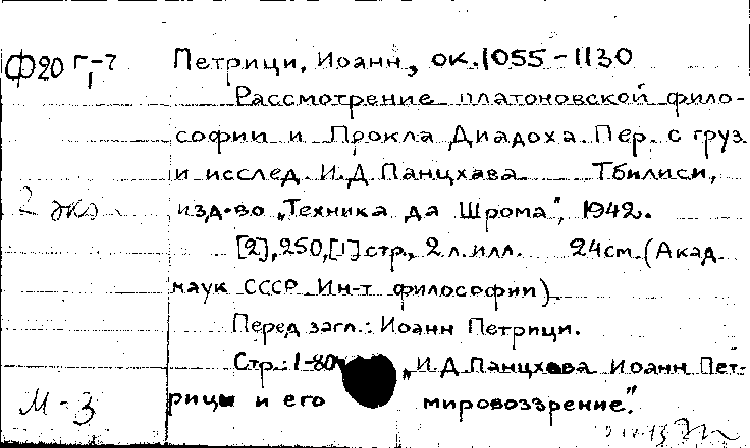 Ф20 Г-7
1
Петрици, Иоанн, ок. 1055-1130
Рассмотрение платоновской фило-
софии и Прокла Диадоха. Пер. с груз.
и исслед. И.Д Панцхава. Тбилиси,
2 экз
изд-во „Техника да Шрома", 1942.
[2], 250, [1] стр., 2 л. илл. 24 см. (Акад.
наук СССР. Ин-т философии)
Перед загл.: Иоанн Петрици.
Стр.: 1-80 „И.Д Панцхава Иоанн Пет-
рици и его мировоззрение."
М-3